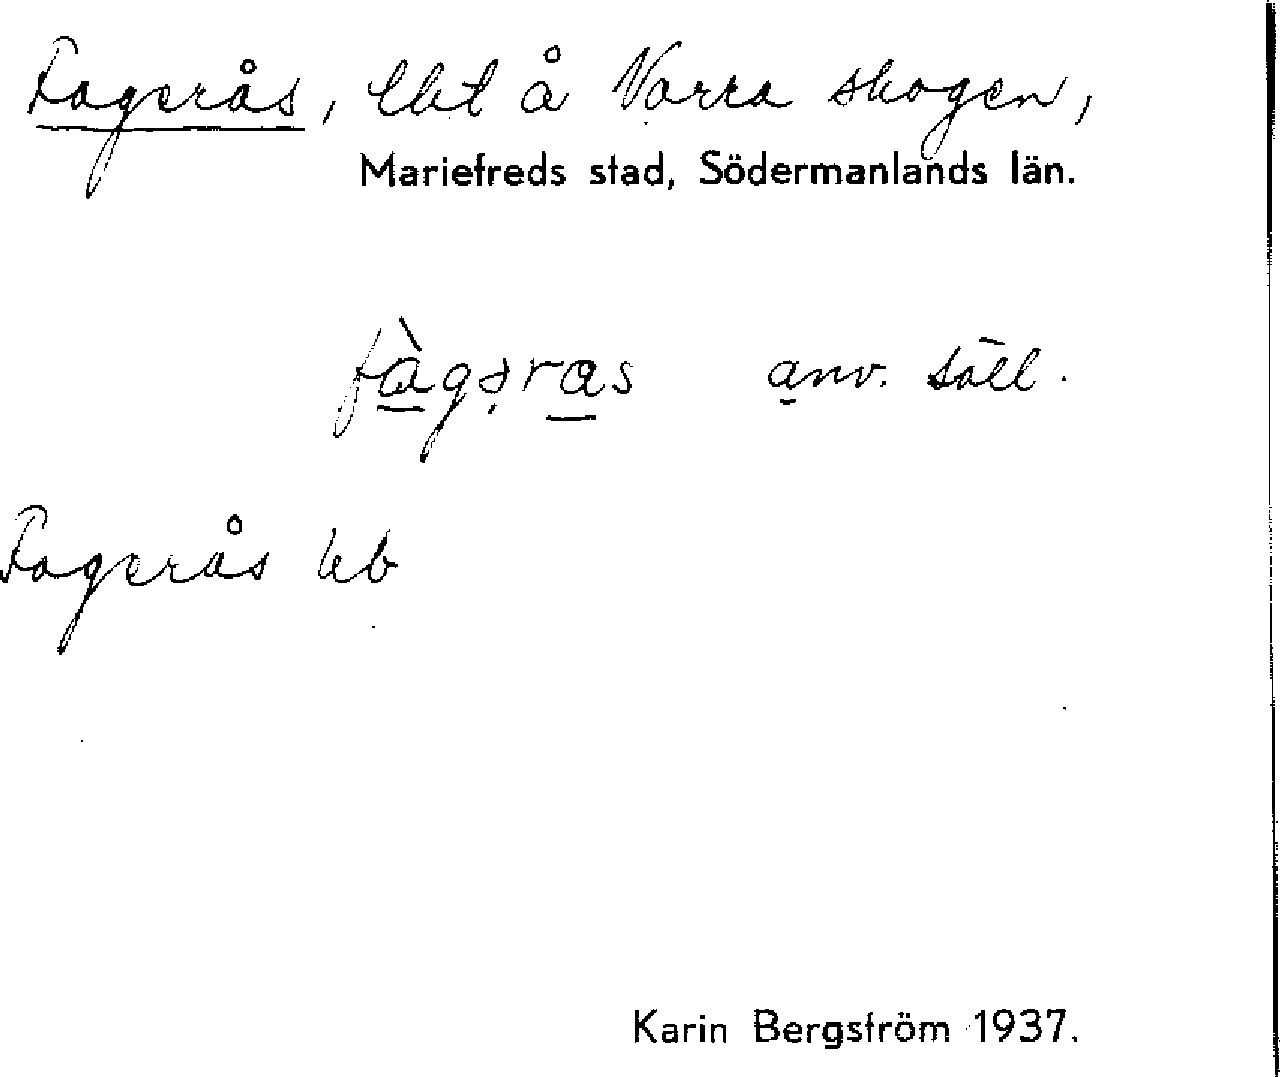 Fagerås, lht å Norra skogen,
Mariefreds stad, Södermanlands län.
fàgəras anv. säll.
Fagerås kb
Karin Bergström 1937.